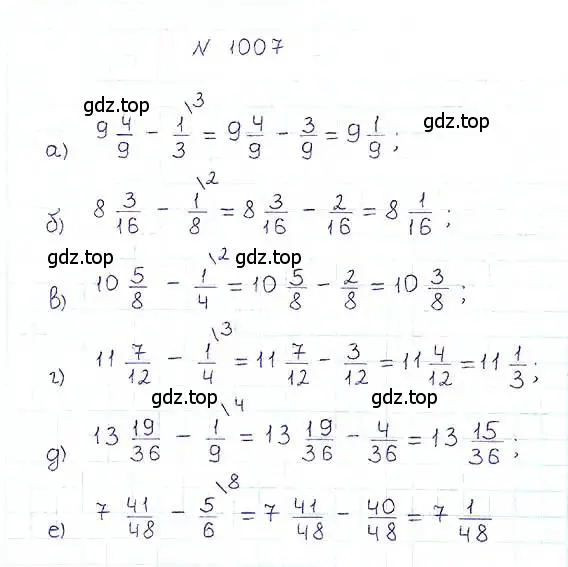 N 1007
gdz.top
gdz.top
а) 9 4/9 - 1/3 \3 = 9 4/9 - 3/9 = 9 1/9;
gdz.top
б) 8 3/16 - 1/8 \2 = 8 3/16 - 2/16 = 8 1/16;
gdz.top
gdz.top
в) 10 5/8 - 1/4 \2 = 10 5/8 - 2/8 = 10 3/8;
г) 11 7/12 - 1/4 \3 = 11 7/12 - 3/12 = 11 4/12 = 11 1/3;
gdz.top
gdz.top
д) 13 19/36 - 1/9 \4 = 13 19/36 - 4/36 = 13 15/36;
gdz.top
gdz.top
е) 7 41/48 - 5/6 \8 = 7 41/48 - 40/48 = 7 1/48